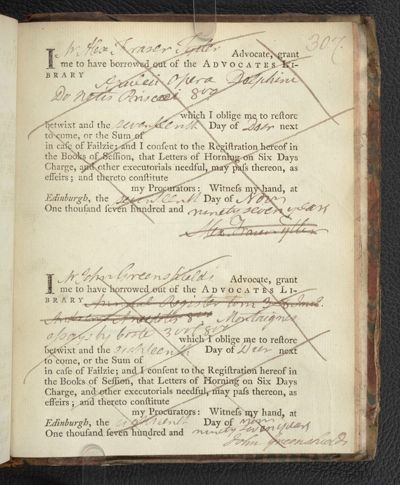 307.
I Mr Alexr. Fraser Tytler Advocate, grant
me to have borrowed out of the ADVOCATES LI-
BRARY
Opera Delphini
Do Notis 8vo
which I oblige me to reſtore
betwixt and the seventeenth Day of Decr next
to come, or the Sum of
in caſe of Failzie; and I conſent to the Regiſtration hereof in
the Books of Seſſion, that Letters of Horning on Six Days
Charge, and other executorials needful, may paſs thereon, as
effeirs; and thereto conſtitute
my Procurators: Witneſs my hand, at
Edinburgh, the seventeenth Day of Novr
One thouſand ſeven hundred and ninety seven years
Alexr. Fraser Tytler
I Mr John Greenshields Advocate, grant
me to have borrowed out of the ADVOCATES LI-
BRARY Annual Register tom
8vo Montaignes
Essays by Coste 3 vol 8vo
which I oblige me to reſtore
betwixt and the Day of Decr next
to come, or the Sum of
in caſe of Failzie; and I conſent to the Regiſtration hereof in
the Books of Seſſion, that Letters of Horning on Six Days
Charge, and other executorials needful, may paſs thereon, as
effeirs; and thereto conſtitute
my Procurators: Witneſs my hand, at
Edinburgh, the Day of Novr
One thouſand ſeven hundred and ninety seven years
John Greenshields